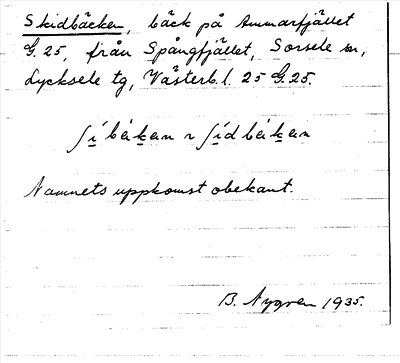 Skidbäcken, bäck på Ammarfjället
G. 25, från Spångfjället, Sorsele sn,
Lycksele tg, Västerb. l. 25 G. 25.
ʃi̱bák̲an ~ ʃi̱dbák̲an
Namnets uppkomst obekant.
B. Nygren 1935.